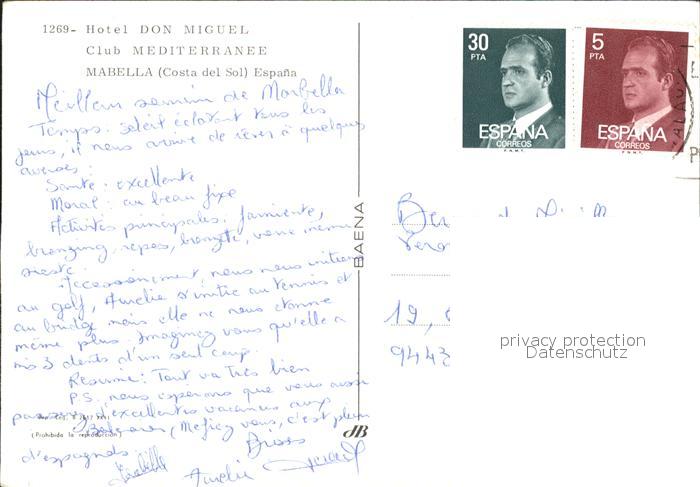 1269- Hotel DON MIGUEL
Club MEDITERRANEE
MABELLA (Costa del Sol) España
Meilleur souvenir de Marbella
Temps: soleil éclatant tous les
jours, il nous arrive de rêver à quelques
averses.
Santé: excellente
Moral: au beau fixe
Activités principales: farniente,
bronzing, repos, bronzette, voire même
sieste.
Accessoirement, nous nous initions
au golf, Aurélie s'initie au tennis et
au bridge mais elle ne nous étonne
même plus. Imaginez vous qu'elle a
mis 3 dents d'un seul coup.
Résumé: Tout va très bien
P.S. nous espérons que vous aussi
passerez d'excellentes vacances aux
Baléares (Méfiez vous, c'est plein
d'espagnols
(Prohibida la reproducción)
Bises
Isabelle
Aurélie
BAENA
30
PTA
ESPAÑA
CORREOS
F.N.M.T.
5
PTA
ESPAÑA
CORREOS
F.N.M.T.
19,
9443
privacy protection
Datenschutz